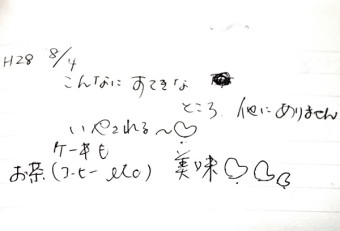 H28 8/4
こんなに すてきな
ところ 他にありません
いやされる〜♡
ケーキも
お茶(コーヒー etc) 美味♡♡♡